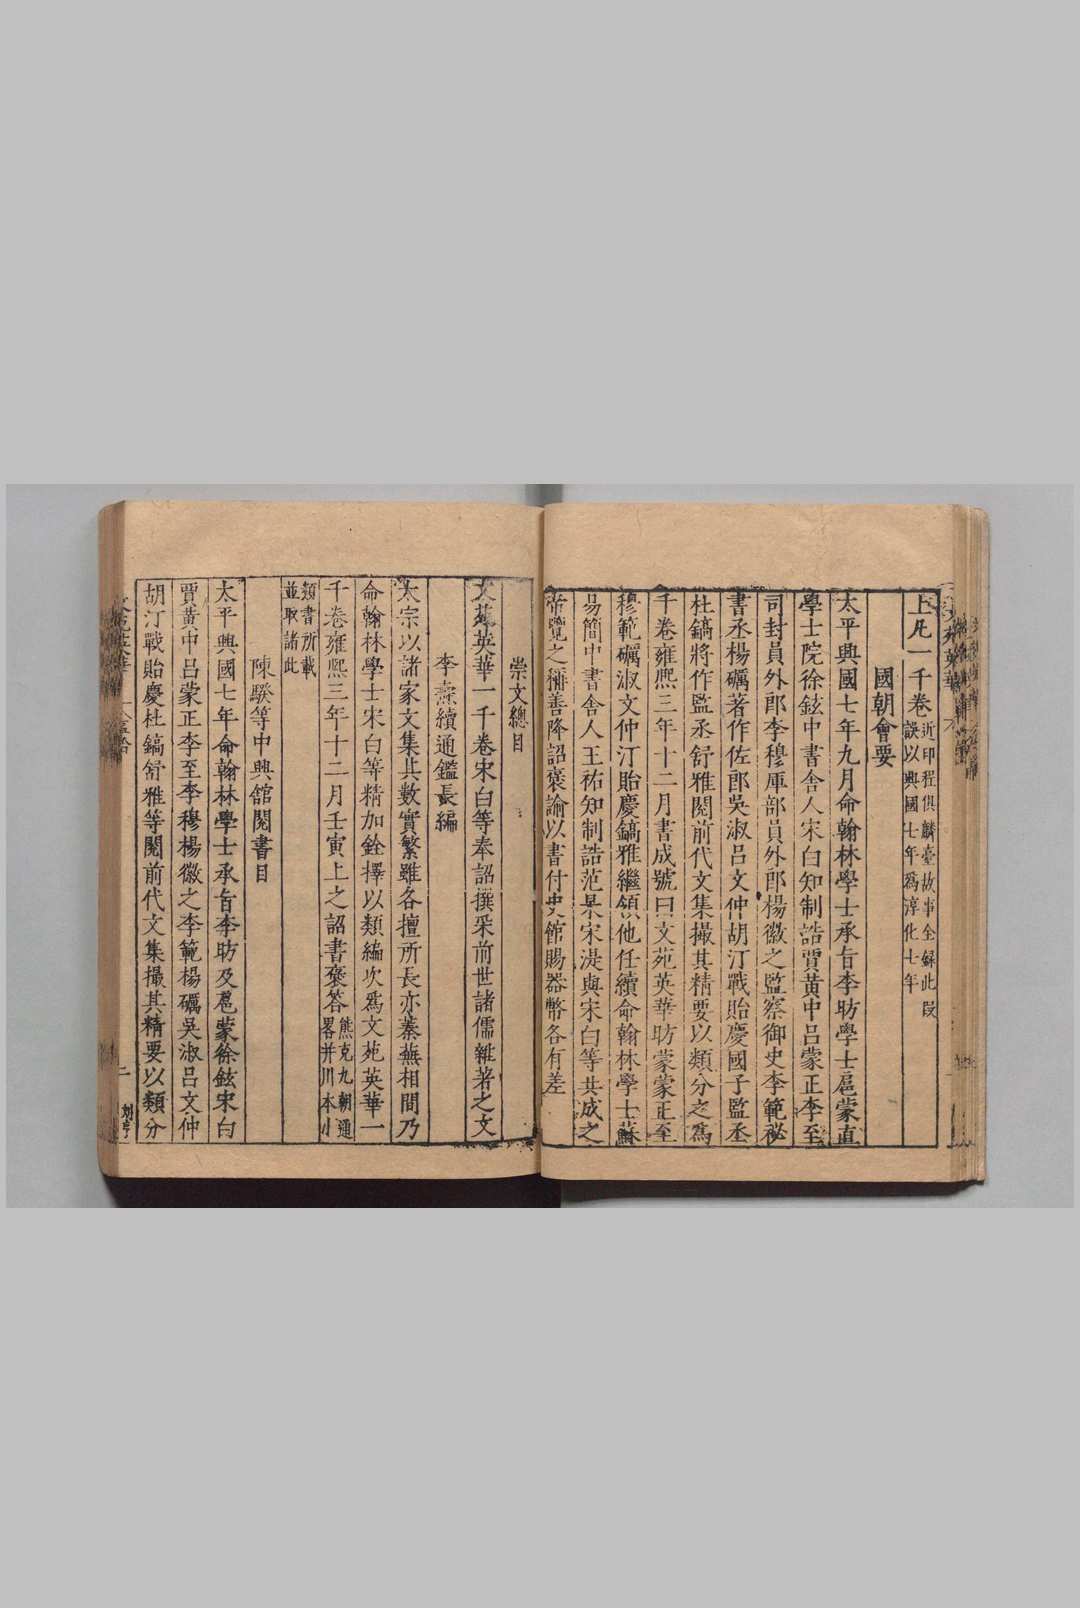 上凡一千卷近印程俱麟臺故事全録此段誤以興國七年爲淳化七年
國朝會要
太平興國七年九月命翰林學士承旨李昉學士扈蒙直
學士院徐鉉中書舎人宋白知制誥賈黃中吕蒙正李至
司封員外郎李穆庫部員外郎楊徽之監察御史李範祕
書丞楊礪著作佐郎吳淑吕文仲胡汀戰貽慶國子監丞
杜鎬將作監丞舒雅閱前代文集撮其精要以類分之爲
千卷雍熙三年十二月書成號曰文苑英華昉蒙蒙正至
穆範礪淑文仲汀貽慶鎬雅繼領他任續命翰林學士蘇
易簡中書舎人王祐知制誥范杲宋湜與宋白等共成之
帝覽之稱善降詔褒諭以書付史館賜器幣各有差
崇文總目
文苑英華一千卷宋白等奉詔撰采前世諸儒雜著之文
李燾續通鑑長編
太宗以諸家文集其數實繁雖各擅所長亦蓁蕪相間乃
命翰林學士宋白等精加銓擇以類編次爲文苑英華一
千卷雍熙三年十二月壬寅上之詔書褒答熊克九朝通畧并川本小
類書所載並取諸此
陳騤等中興舘閱書目
太平興國七年命翰林學士承旨李昉及扈蒙徐鉉宋白
賈黃中吕蒙正李至李穆楊徽之李範楊礪吳淑吕文仲
胡汀戰貽慶杜鎬舒雅等閱前代文集撮其精要以類分
二